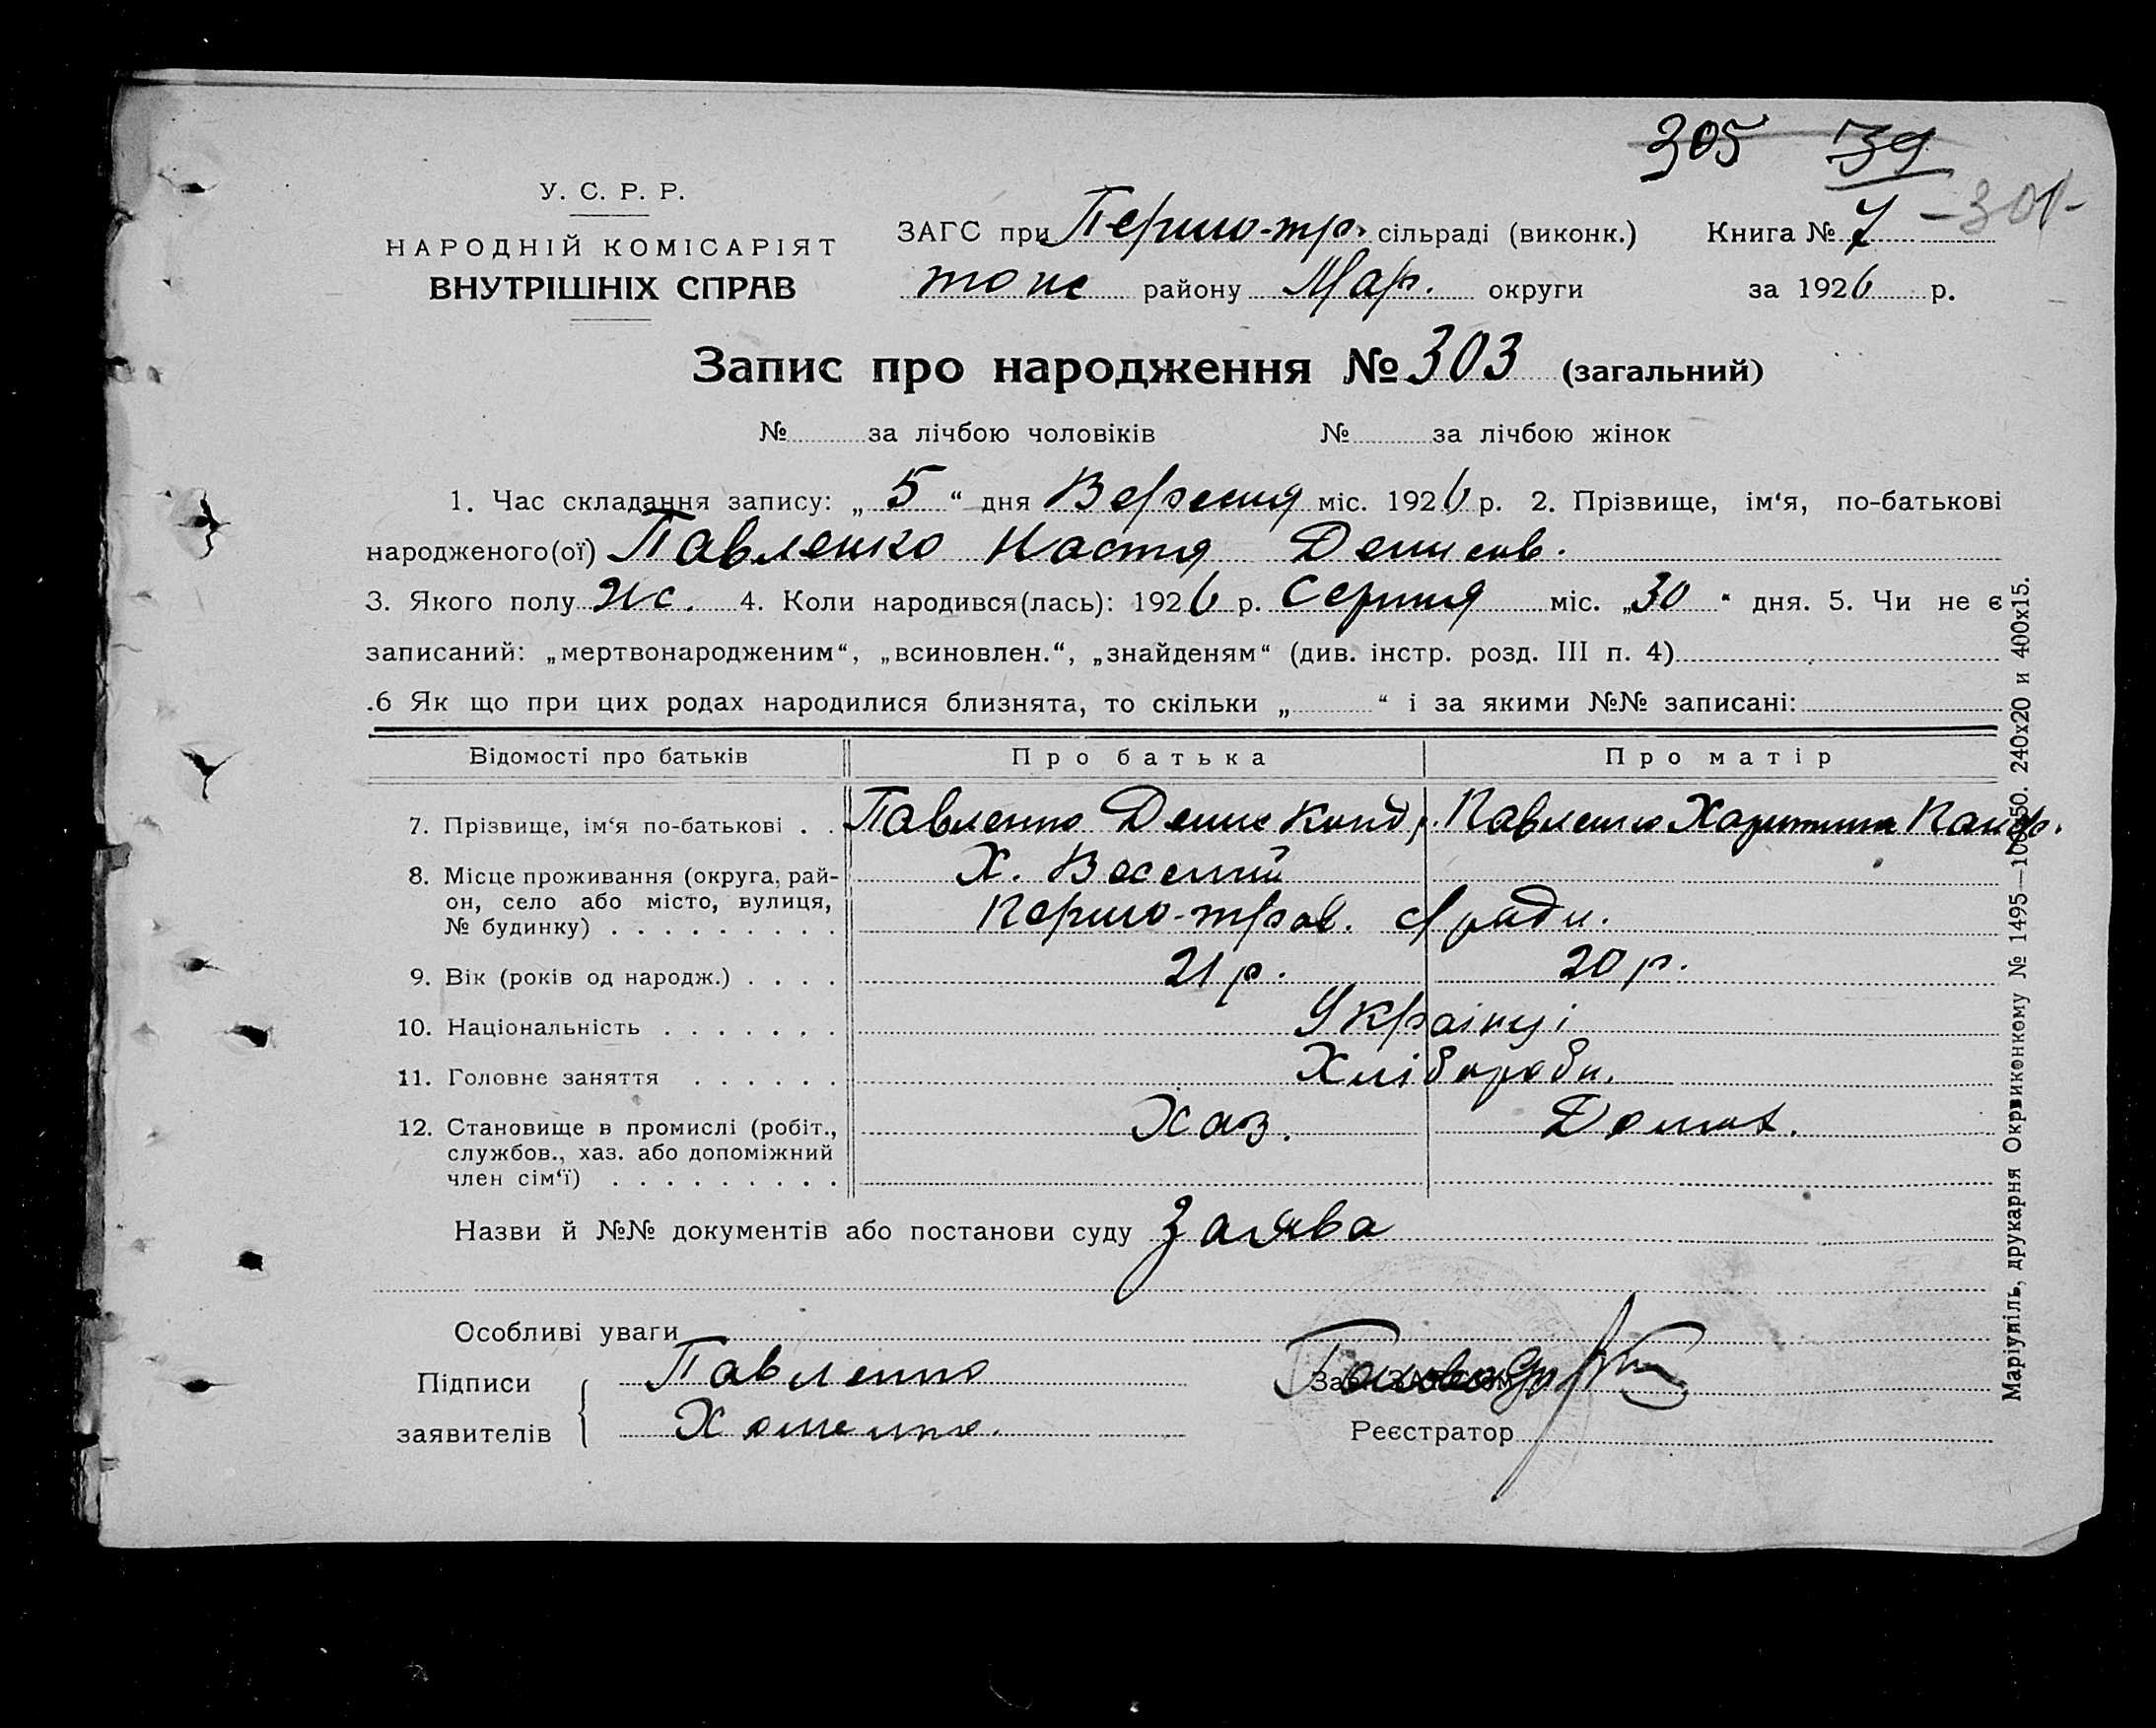 305 39
У. С. Р. Р.
НАРОДНІЙ КОМІСАРІЯТ
ВНУТРІШНІХ СПРАВ
ЗАГС при Першо-тр. сільраді (виконк.) Книга № 7 - 301-
того ж району Мар. округи за 1926 р.
Запис про народження № 303 (загальний)
№ за лічбою чоловіків № за лічбою жінок
1. Час складання запису: „ 5 “ дня Вересня міс. 1926 р. 2. Прізвище, ім‘я, по-батькові
народженого(ої) Павленко Настя Денисов.
3. Якого полу ж. 4. Коли народився(лась): 1926 р. Серпня міс. „30 “ дня. 5. Чи не є
записаний: „мертвонародженим“, „всиновлен.“, „знайденям“ (див. інстр. розд. III п. 4)
.6 Як що при цих родах народилися близнята, то скільки „ “ і за якими №№ записані:
Відомості про батьків Про батька Про матір
7. Прізвище, ім‘я по-батькові . . Павленко Денис Конд. Павленко Харитина
8. Місце проживання (округа, рай- Х. Веселий
он, село або місто, вулиця, Першо-трав. с/ради.
№ будинку) . . . . . . . . .
9. Вік (років од народж.) . . . . 21 р. 20 р.
10. Національність . . . . . . . Українці
11. Головне заняття . . . . . . Хлібороби.
12. Становище в промислі (робіт., Хаз. Домог.
службов., хаз. або допоміжний
член сім‘ї) . . . . . . . . .
Назви й №№ документів або постанови суду Заява
Особливі уваги
Підписи Павленко
заявителів Хоменко.
Реєстратор
Маріупіль, друкарня Окрвиконкому № 1495—100х50. 240х20 и 400х15.